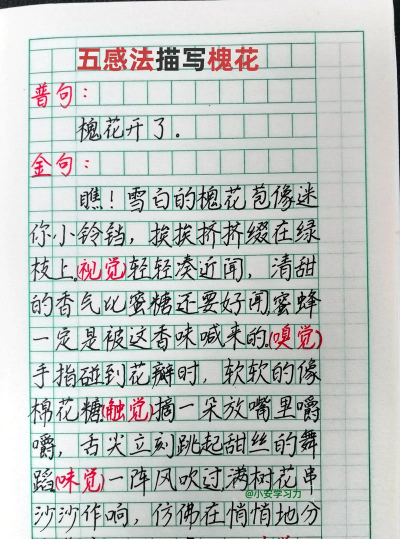 五感法描写槐花
普句：
槐花开了。
金句：
瞧！雪白的槐花苞像迷
你小铃铛，挨挨挤挤缀在绿
枝上。(视觉)轻轻凑近闻，清甜
的香气比蜜糖还要好闻,蜜蜂
一定是被这香味喊来的。(嗅觉)
手指碰到花瓣时，软软的像
棉花糖(触觉)摘一朵放嘴里嚼
嚼，舌尖立刻跳起甜丝丝的舞
蹈(味觉)一阵风吹过满树花串
@小安学习力
沙沙作响，仿佛在悄悄地分